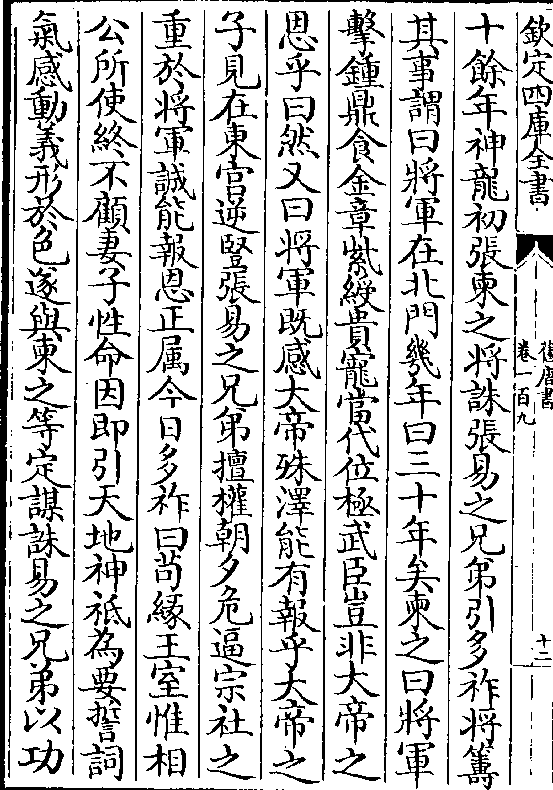 欽定四庫全書
舊唐書
卷一百九
十二
十餘年神龍初張柬之將誅張易之兄弟引多祚將籌
其事謂曰將軍在北門幾年曰三十年矣柬之曰將軍
擊鍾鼎食金章紫綬貴寵當代位極武臣豈非大帝之
恩乎曰然又曰將軍既感大帝殊澤能有報乎大帝之
子見在東宫逆豎張易之兄弟擅權朝夕危逼宗社之
重於將軍誠能報恩正属今日多祚曰茍緣王室惟相
公所使終不顧妻子性命因即引天地神祇為要誓詞
氣感動義形於色遂與柬之等定謀誅易之兄弟以功